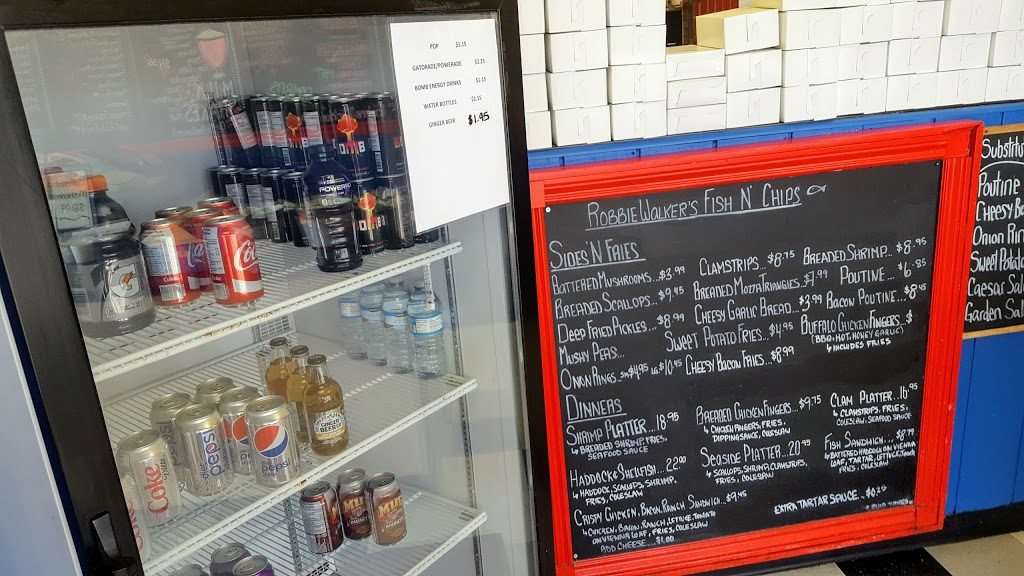 POP $1.15
GATORADE/POWERADE $2.25
BOMB ENERGY DRINKS $1.15
WATER BOTTLES $1.15
GINGER BEER $1.95
POWERADE
Coke
Coke
diet pepsi
diet pepsi
GINGER BEER
MUG
ROBBIE WALKER'S FISH N' CHIPS
SIDES 'N FRIES
BATTERED MUSHROOMS...$3.99
BREADED SCALLOPS...$9.95
DEEP FRIED PICKLES...$8.99
MUSHY PEAS...
ONION RINGS...SM $4.95 LG $10.45
CLAMSTRIPS...$8.75
BREADED MOZZA TRIANGLES...$7.99
CHEESY GARLIC BREAD...$3.99
SWEET POTATO FRIES...$4.95
CHEESY BACON FRIES...$8.99
BREADED SHRIMP...$8.95
POUTINE...$6.85
BACON POUTINE...$8.45
BUFFALO CHICKEN FINGERS...$
(BBQ, HOT, HONEY GARLIC)
4 INCLUDES FRIES
DINNERS
SHRIMP PLATTER...18.95
4 BREADED SHRIMP, FRIES,
SEAFOOD SAUCE
HADDOCK & SHELLFISH...22.00
4 HADDOCK, SCALLOPS, SHRIMP,
FRIES, COLESLAW
CRISPY CHICKEN, BACON, RANCH SANDWICH...$9.45
4 CHICKEN, BACON, RANCH, LETTUCE, TOMATO
ON VIENNA LOAF, FRIES, COLESLAW
ADD CHEESE...$1.00
BREADED CHICKEN FINGERS...$9.75
4 CHICKEN FINGERS, FRIES,
DIPPING SAUCE, COLESLAW
SEASIDE PLATTER...20.99
4 SCALLOPS, SHRIMP, CLAMSTRIPS,
FRIES, COLESLAW
CLAM PLATTER...16.95
4 CLAMSTRIPS, FRIES,
COLESLAW, SEAFOOD SAUCE
FISH SANDWICH...$8.79
4 BATTERED HADDOCK ON VIENNA
LOAF, TARTAR, LETTUCE, TOMATO
FRIES, COLESLAW
EXTRA TARTAR SAUCE...$0.25
Substitu
Poutine
Cheesy Ba
Onion Rin
Sweet Potato
Caesar Sal
Garden Sal